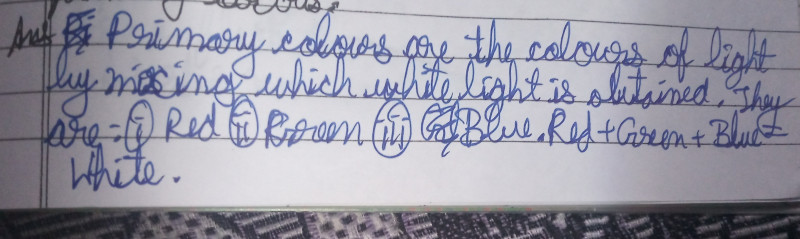 Ans Primary colours are the colours of light
by mixing which white light is obtained. They
are :- (i) Red (ii) Green (iii) Blue. Red + Green + Blue =
White.